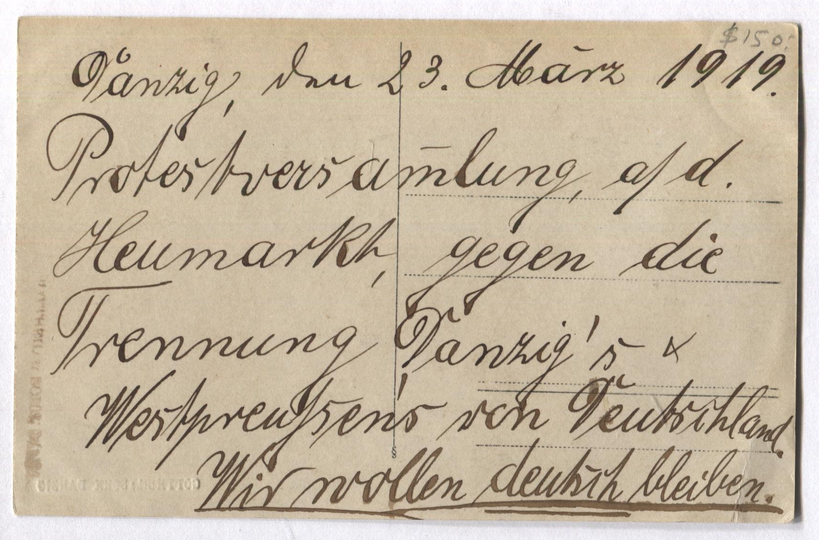 $150.
Danzig, den 23. März 1919.
Protestversam̅lung, a/d.
Heumarkt, gegen die
Trennung Danzig's &
Westpreußen's von Deutschland.
Wir wollen deutsch bleiben.